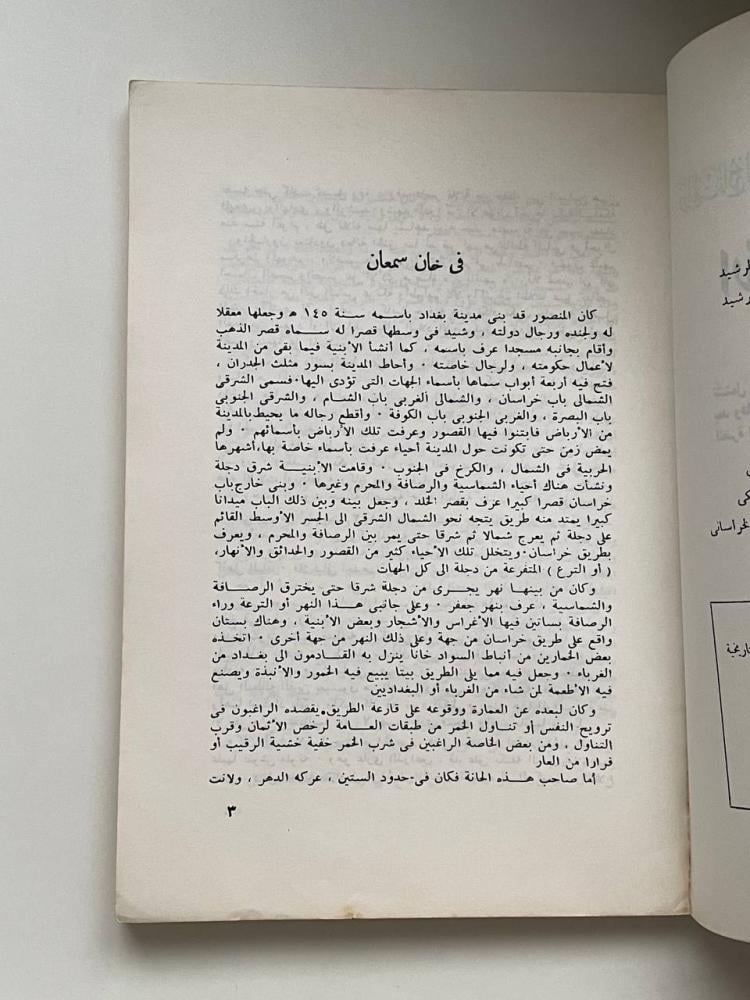 فى خان سمعان
كان المنصور قد بنى مدينة بغداد باسمه سنة ١٤٥ ه وجعلها معقلا
له ولجنده ورجال دولته ، وشيد فى وسطها قصرا له سماه قصر الذهب
وأقام بجانبه مسجدا عرف باسمه ، كما أنشأ الأبنية فيما بقى من المدينة
لأعمال حكومته ، ولرجال خاصته · وأحاط المدينة بسور مثلث الجدران ،
فتح فيه أربعة أبواب سماها بأسماء الجهات التى تؤدى اليها· فسمى الشرقى
الشمالى باب خراسان ، والشمالى الغربى باب الشام ، والشرقى الجنوبى
باب البصرة ، والغربى الجنوبى باب الكوفة · وأقطع رجاله ما يحيط بالمدينة
من الأرباض فابتنوا فيها القصور وعرفت تلك الأرباض بأسمائهم · ولم
يمض زمن حتى تكونت حول المدينة أحياء عرفت بأسماء خاصة بها،أشهرها
الحربية فى الشمال ، والكرخ فى الجنوب · وقامت الأبنية شرق دجلة
ونشأت هناك أحياء الشماسية والرصافة والمحرم وغيرها · وبنى خارج باب
خراسان قصرا كبيرا عرف بقصر الخلد ، وجعل بينه وبين ذلك الباب ميدانا
كبيرا يمتد منه طريق يتجه نحو الشمال الشرقى الى الجسر الأوسط القائم
على دجلة ثم يعرج شمالا ثم شرقا حتى يمر بين الرصافة والمحرم ، ويعرف
بطريق خراسان·ويتخلل تلك الأحياء كثير من القصور والحدائق والأنهار،
( أو الترع ) المتفرعة من دجلة الى كل الجهات
وكان من بينها نهر يجرى من دجلة شرقا حتى يخترق الرصافة
والشماسية ، عرف بنهر جعفر · وعلى جانبى هذا النهر أو الترعة وراء
الرصافة بساتين فيها الأغراس والأشجار وبعض الأبنية ، وهناك بستان
واقع على طريق خراسان من جهة وعلى ذلك النهر من جهة أخرى · اتخذه
بعض الخمارين من أنباط السواد خانا ينزل به القادمون الى بغداد من
الغرباء · وجعل فيه مما يلى الطريق بيتا يبيع فيه الخمور والأنبذة ويصنع
فيه الأطعمة لمن شاء من الغرباء أو البغداديين
وكان لبعده عن العمارة ووقوعه على قارعة الطريق،يقصده الراغبون فى
ترويح النفس أو تناول الخمر من طبقات العامة لرخص الأثمان وقرب
التناول ، ومن بعض الخاصة الراغبين فى شرب الخمر خفية خشية الرقيب أو
فرارا من العار
أما صاحب هذه الحانة فكان فى حدود الستين ، عركه الدهر ، ولانت
٣